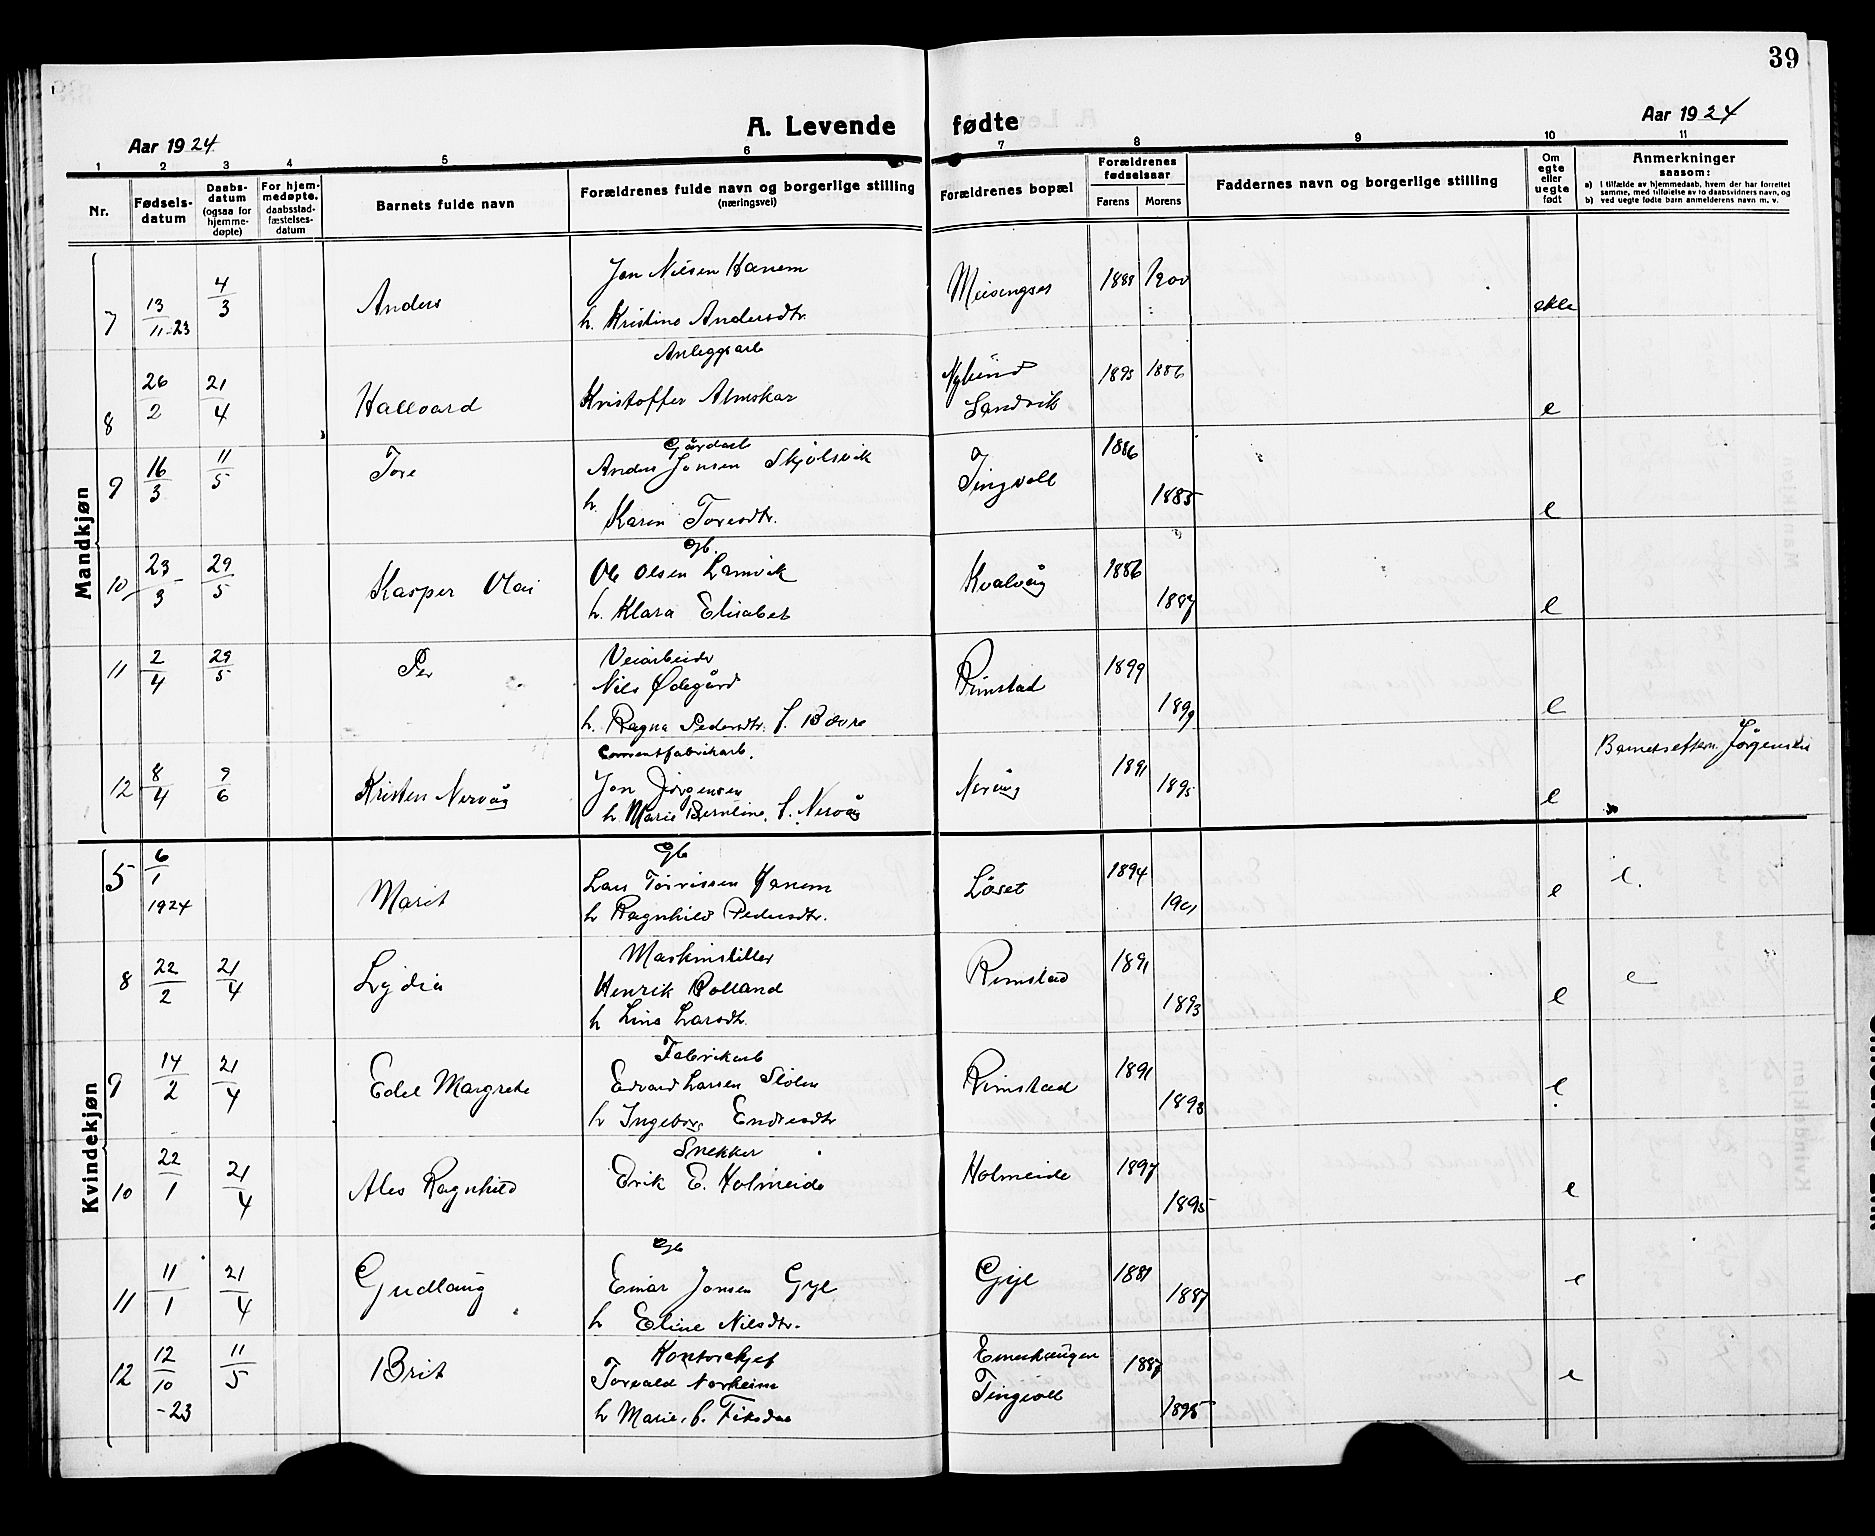 39
A. Levende fødte
Aar 1924
Aar 1924
1 2 3 4 5 6 7 8 9 10 11
Nr.
Fødsels-
datum
Daabs-
datum
(ogsaa for
hjemme-
døpte)
For hjem-
medøpte.
daabsstad-
fæstelses-
datum
Barnets fulde navn
Forældrenes fulde navn og borgerlige stilling
(næringsvei)
Forældrenes bopæl
Forældrenes
fødselsaar
Farens Morens
Faddernes navn og borgerlige stilling
Om
egte
eller
uegte
født
Anmerkninger
saasom:
a) i tilfælde av hjemmedaab, hvem der har forrettet
samme, med tilføielse av to daabsvidners navn, og
b) ved uegte fødte barn anmelderens navn m. v.
Mandkjøn
7 13/11-23 4/3 Anders Jon Nilsen Hanem Meisingset 1888 1900 ekte
h. Kristine Andersdtr.
Anleggsarb
8 26/2 21/4 Hallvard Kristoffer Almskar Nylund 1895 1886 e
Sandvik
Gårdarb
9 16/3 11/5 Tore Anders Jonsen Skjølsvik Tingvoll 1886 1885 e
h. Karen Toresdtr.
Gb.
10 23/3 29/5 Kasper Olai Ole Olsen Lamvik Kvalvåg 1886 1887 e
h. Klara Elisabet
Veiarbeider
11 2/4 29/5 Per Nils Ødegård Rimstad 1899 1899 e
h. Ragna Pedersdtr. f. Bævre
Cementfabrikarb.
12 8/4 9/6 Kristen Nervåg Jon Jørgensen Nervåg 1891 1895 e Barnets eftern. Jørgensen
h. Marie Berntine, f. Nervåg
Kvindekjøn
Gb
5 6/1 1924 Marit Lars Torrissen Hanem Løset 1894 1901 e e.
h Ragnhild Pedersdtr.
Maskinstiller
8 22/2 21/4 Lydia Henrik Bolland Rimstad 1891 1893 e e
h Lina Larsdtr.
Fabrikarb
9 14/2 21/4 Edel Margrete Edvard Larsen Stølen Rimstad 1891 1893 e
h Ingeborg Endresdtr
Snekker
10 22/1 21/4 Ales Ragnhild Erik E. Holmeide Holmeide 1897 1895 e
Gb
11 11/1 21/4 Gudlaug Einar Jonsen Gyl Gyl 1881 1887 e
h Eline Nilsdtr.
Kontorchef
12 12/10-23 11/5 Brit Torvald Norheim Tingvoll 1887 1895 e
h Marie, f. Fiksdal